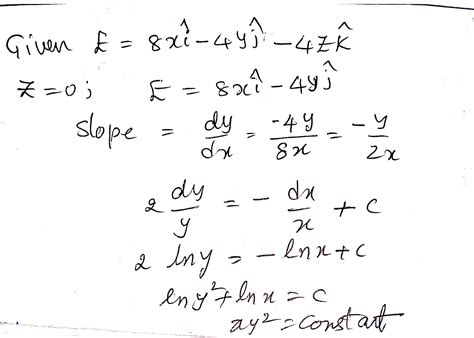 Given E = 8xî - 4yĵ - 4zk̂
Z = 0 ; E = 8xî - 4yĵ
slope = dy/dx = -4y/8x = -y/2x
2 dy/y = - dx/x + c
2 lny = - lnx + c
lny² + lnx = c
xy² = constant